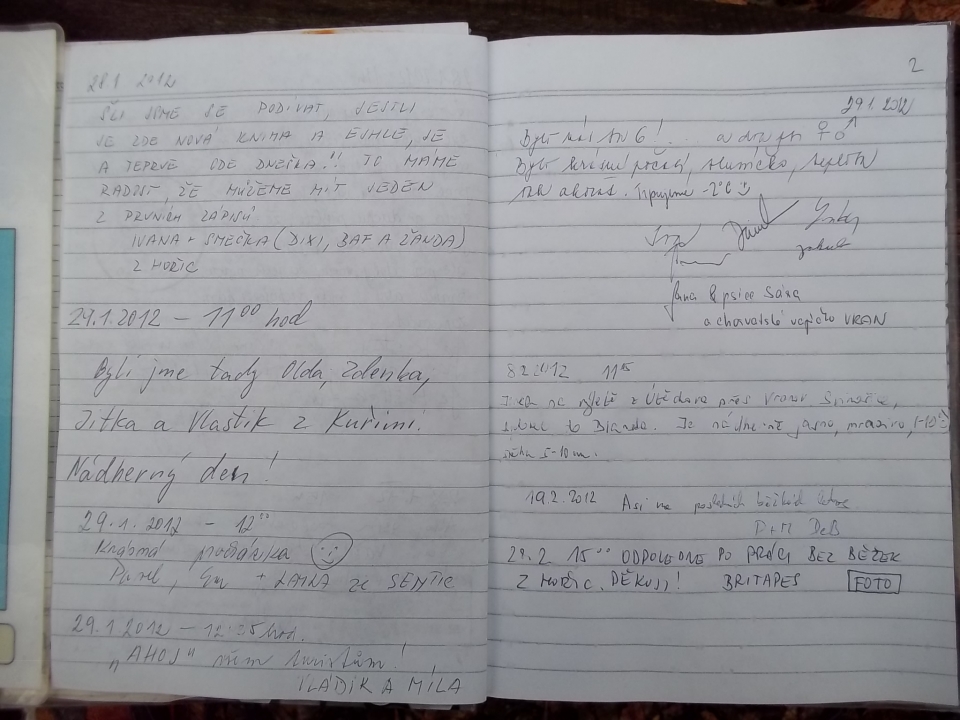 28.1. 2012
ŠLI JSME SE PODÍVAT, JESTLI
JE ZDE NOVÁ KNIHA A EJHLE, JE
A TEPRVE ODE DNEŠKA!! TO MÁME
RADOST, ŽE MŮŽEME MÍT JEDEN
Z PRVNÍCH ZÁPISŮ
IVANA + SMEČKA (DIXI, BAF A ŽANDA)
Z HOŘIC
29.1.2012 – 11⁰⁰ hod
Byli jme tady Olda, Zdenka,
Jitka a Vlastik z Kuřimi.
Nádherný den!
29.1.2012 – 12⁰⁰
Krásná procházka ☺
Pavel, + ze SENTIC
29.1.2012 – 12:35 hod.
„AHOJ" všem turistům!
VLÁDIK A MÍLA
2
29.1.2012
Bylo nás 6! ... a dva psi ♀♂
Bylo krásné počasí, sluníčko, teplota
tak akorát. Tipujeme -2°C ☺
Jakub
Jana & psice Sára
a chovatelské VRAN
8.2.2012 11¹⁵
z přes
to Je nádherně jasno, mrazivo, (-10°)
5-10 cm.
19.2.2012 Asi na posledních běžkách letos
P+M DeB
29.2. 15⁰⁰ ODPOLEDNE PO PRÁCI BEZ BĚŽEK
Z HOŘIC. DĚKUJI! BRITAPES FOTO